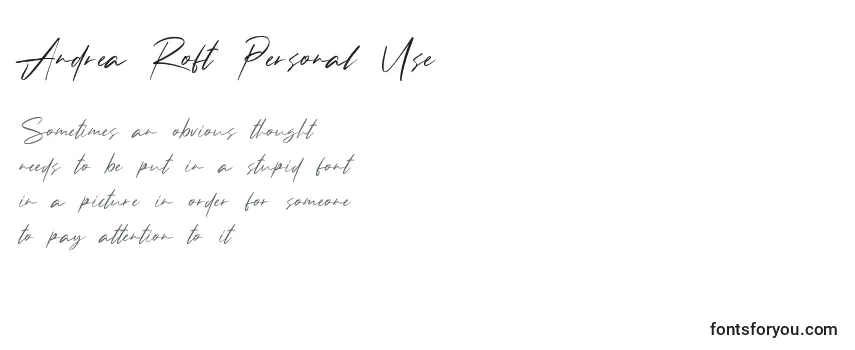 Andrea Roft Personal Use
Sometimes an obvious thought
needs to be put in a stupid font
in a picture in order for someone
to pay attention to it
fontsforyou.com